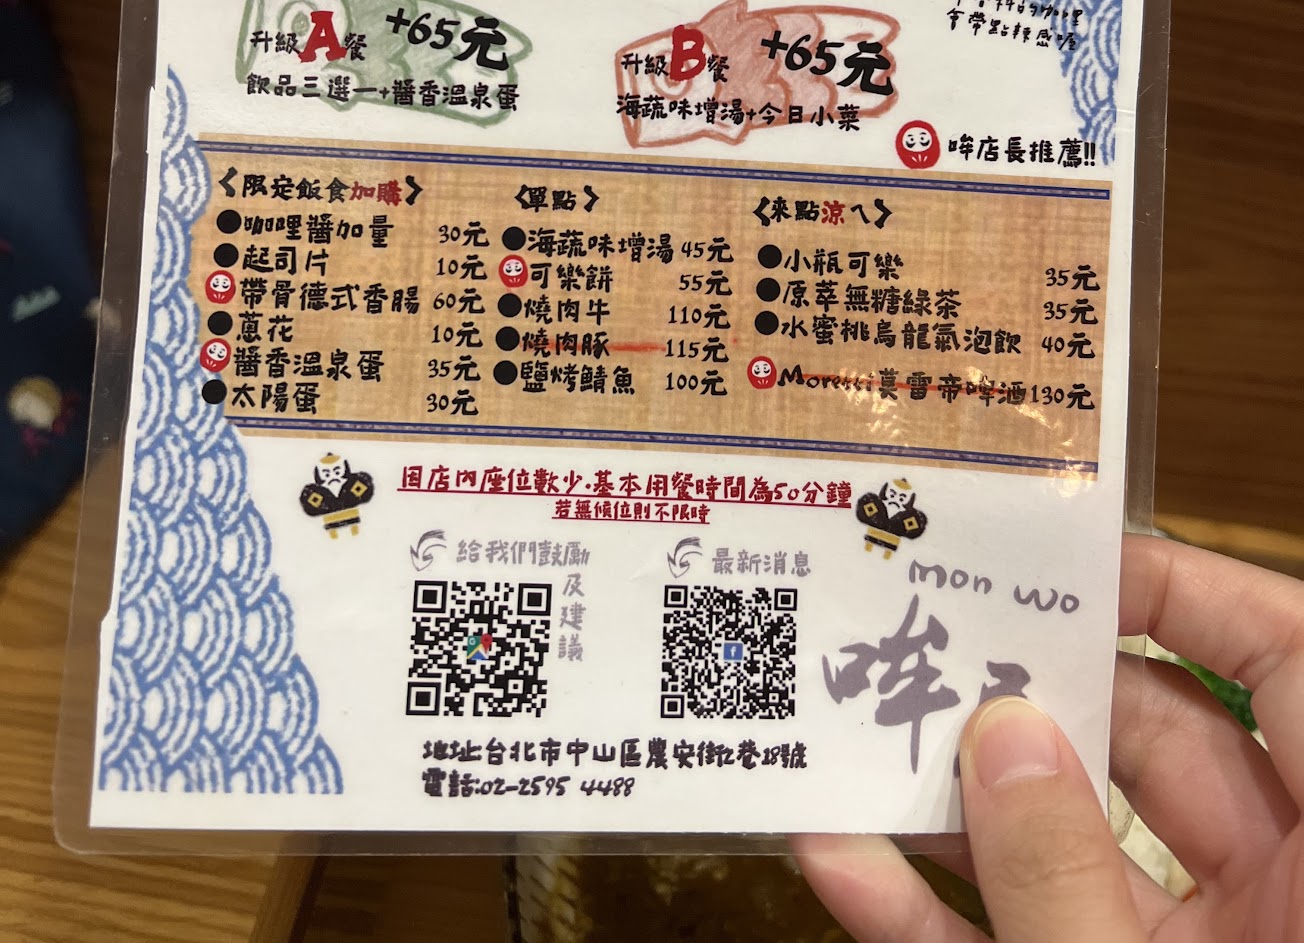 升級A餐 +65元
飲品三選一+醬香溫泉蛋
升級B餐 +65元
海蔬味增湯+今日小菜
會帶點辣感喔
哞店長推薦!!
〈限定飯食加購〉
●咖哩醬加量 30元
●起司片 10元
帶骨德式香腸 60元
●蔥花 10元
醬香溫泉蛋 35元
●太陽蛋 30元
〈單點〉
●海蔬味增湯 45元
可樂餅 55元
●燒肉牛 110元
●燒肉豚 115元
●鹽烤鯖魚 100元
〈來點涼ㄟ〉
●小瓶可樂 35元
●原萃無糖綠茶 35元
●水蜜桃烏龍氣泡飲 40元
Moretti莫雷帝啤酒 130元
因店內座位數少.基本用餐時間為50分鐘
若無候位則不限時
給我們鼓勵及建議
最新消息
mon wo
哞
地址台北市中山區農安街2巷18號
電話:02-2595 4488